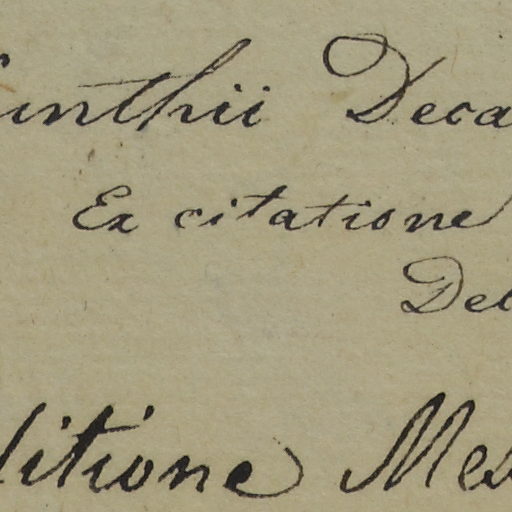 unthii Deca
Ex citatione
Del
ditione Me